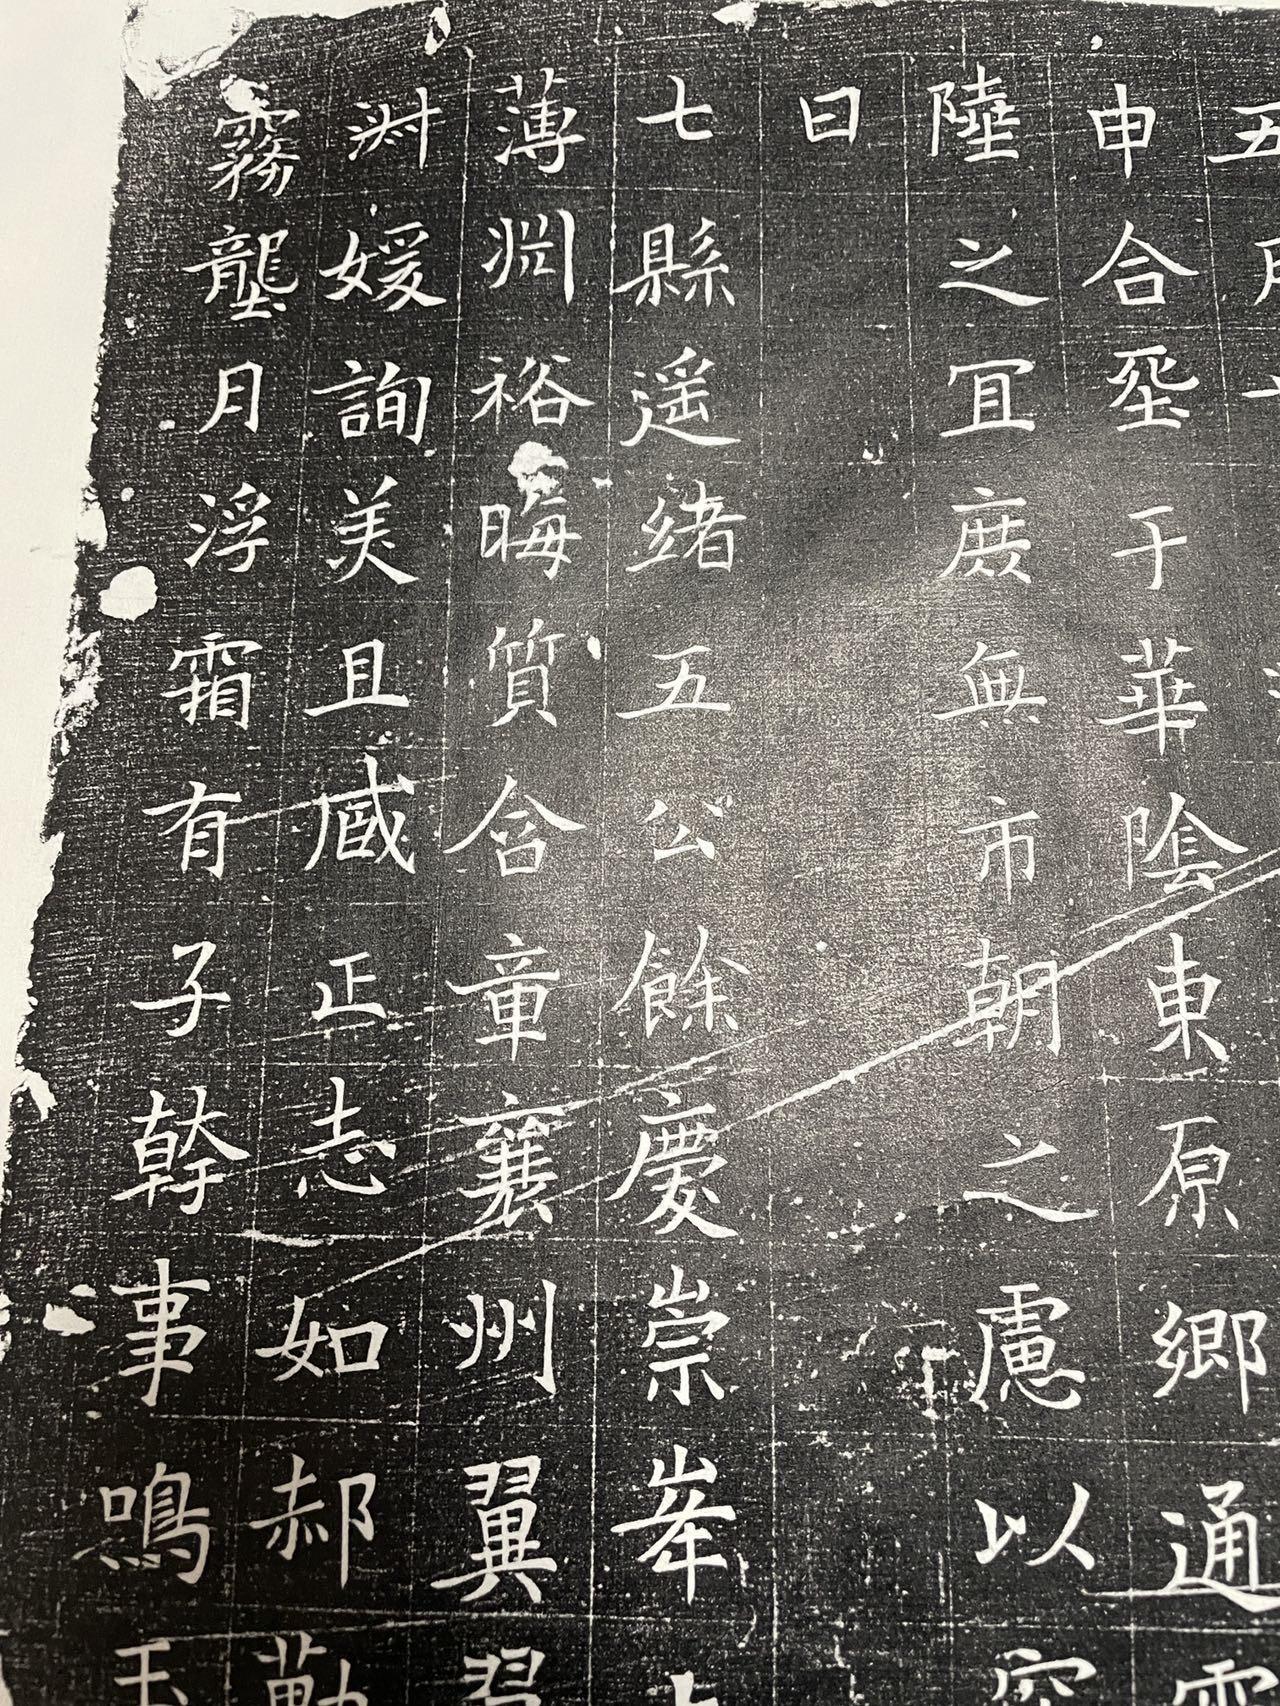 五
申合𡊮于華陰東原鄉通
陸之冝庻無市朝之慮以
曰
七縣遥緒五公餘慶崇峯
薄渕裕晦質含章襄州翼
淑媛詢美且感正志如郝
霧壟月浮霜有子幹事鳴